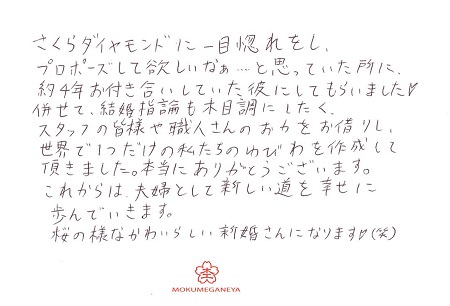 さくらダイヤモンドに一目惚れをし、
プロポーズして欲しいなぁ…と思っていた所に、
約4年お付き合いしていた彼にしてもらいました♡
併せて、結婚指論も木目調にしたく、
スタッフの皆様や職人さんのお力をお借りし、
世界で1つだけの私たちのゆびわを作成して
頂きました。本当にありがとうございます。
これからは、夫婦として新しい道を幸せに
歩んでいきます。
桜の様なかわいらしい新婚さんになります♡(笑)
MOKUMEGANEYA